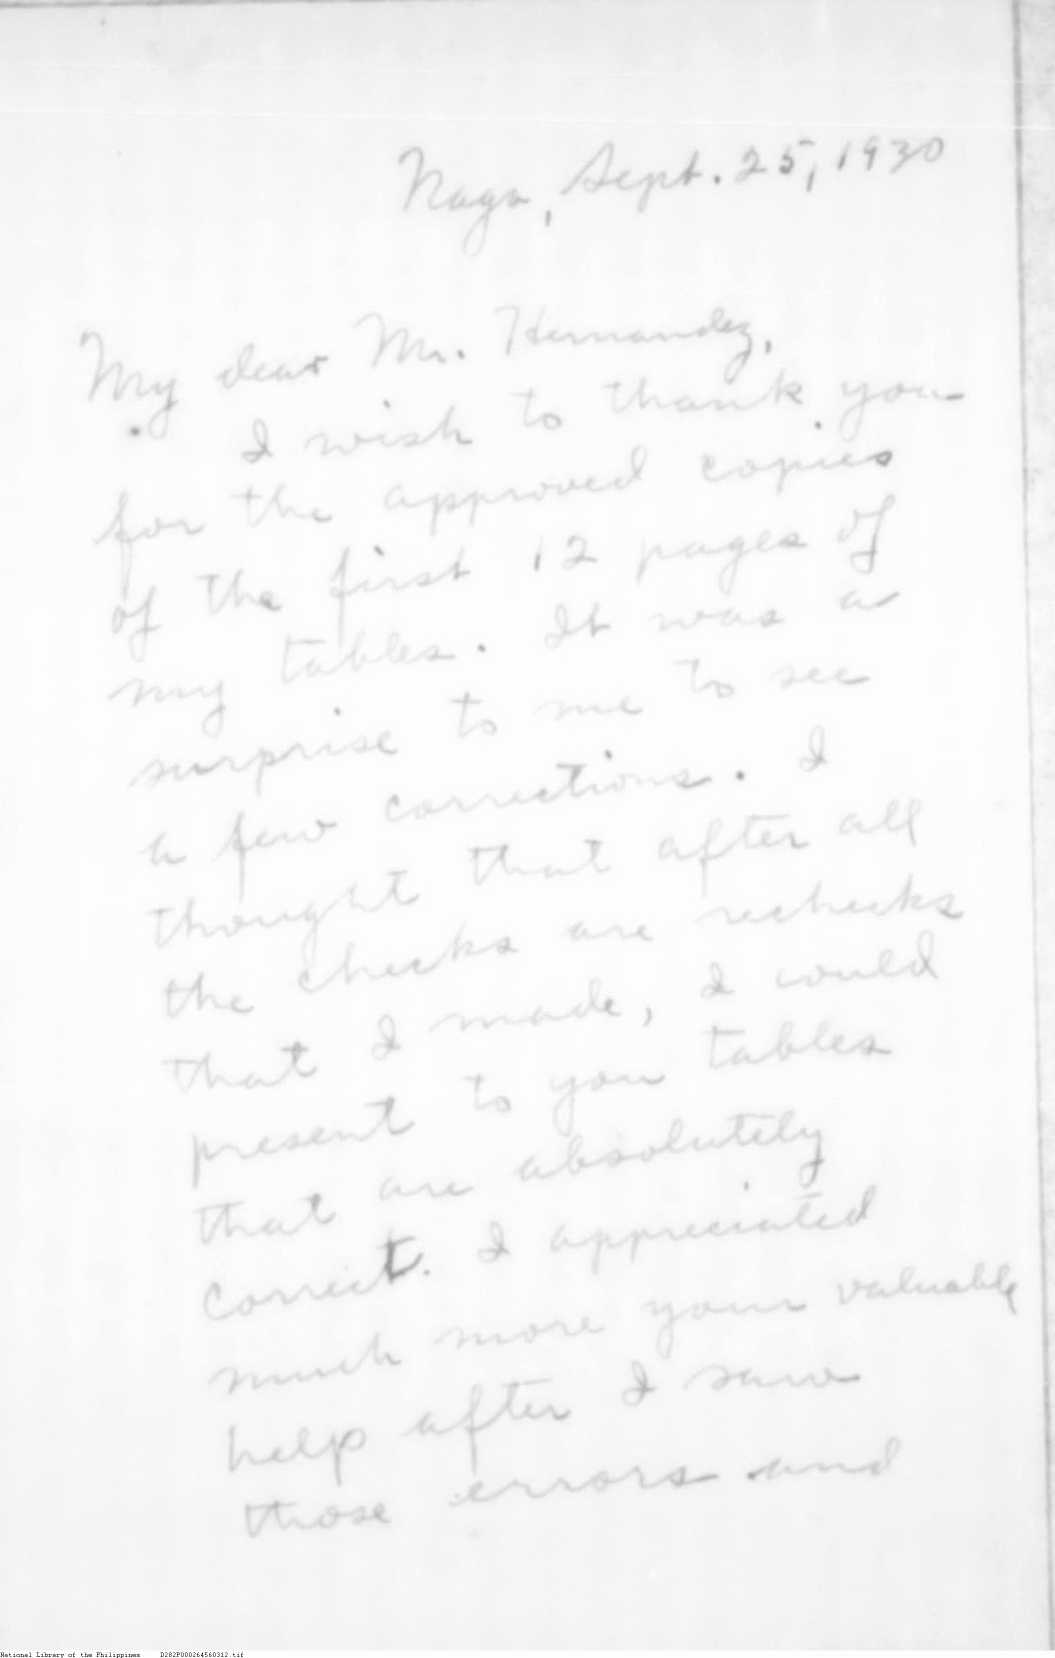 Naga, Sept. 25, 1930
My dear Mr. Hernandez,
I wish to thank you
for the approved copies
of the first 12 pages of
my tables. It was a
surprise to me to see
a few corrections. I
thought that after all
the checks are rechecks
that I made, I would
present to you tables
that are absolutely
correct. I appreciated
much more your valuable
help after I saw
those errors and
National Library of the Philippines D282P000264560312.tif